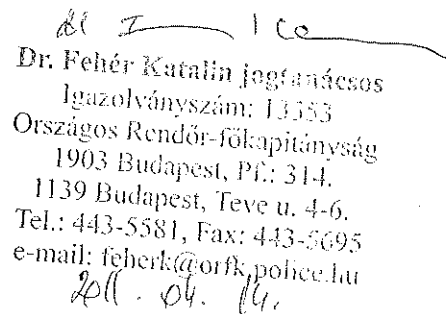 Dr. Fehér Katalin jogtanácsos
Igazolványszám: 13353
Országos Rendőr-főkapitányság
1903 Budapest, Pf.: 314.
1139 Budapest, Teve u. 4-6.
Tel.: 443-5581, Fax: 443-5695
e-mail: feherk@orfk.police.hu
2011. 04. 14.